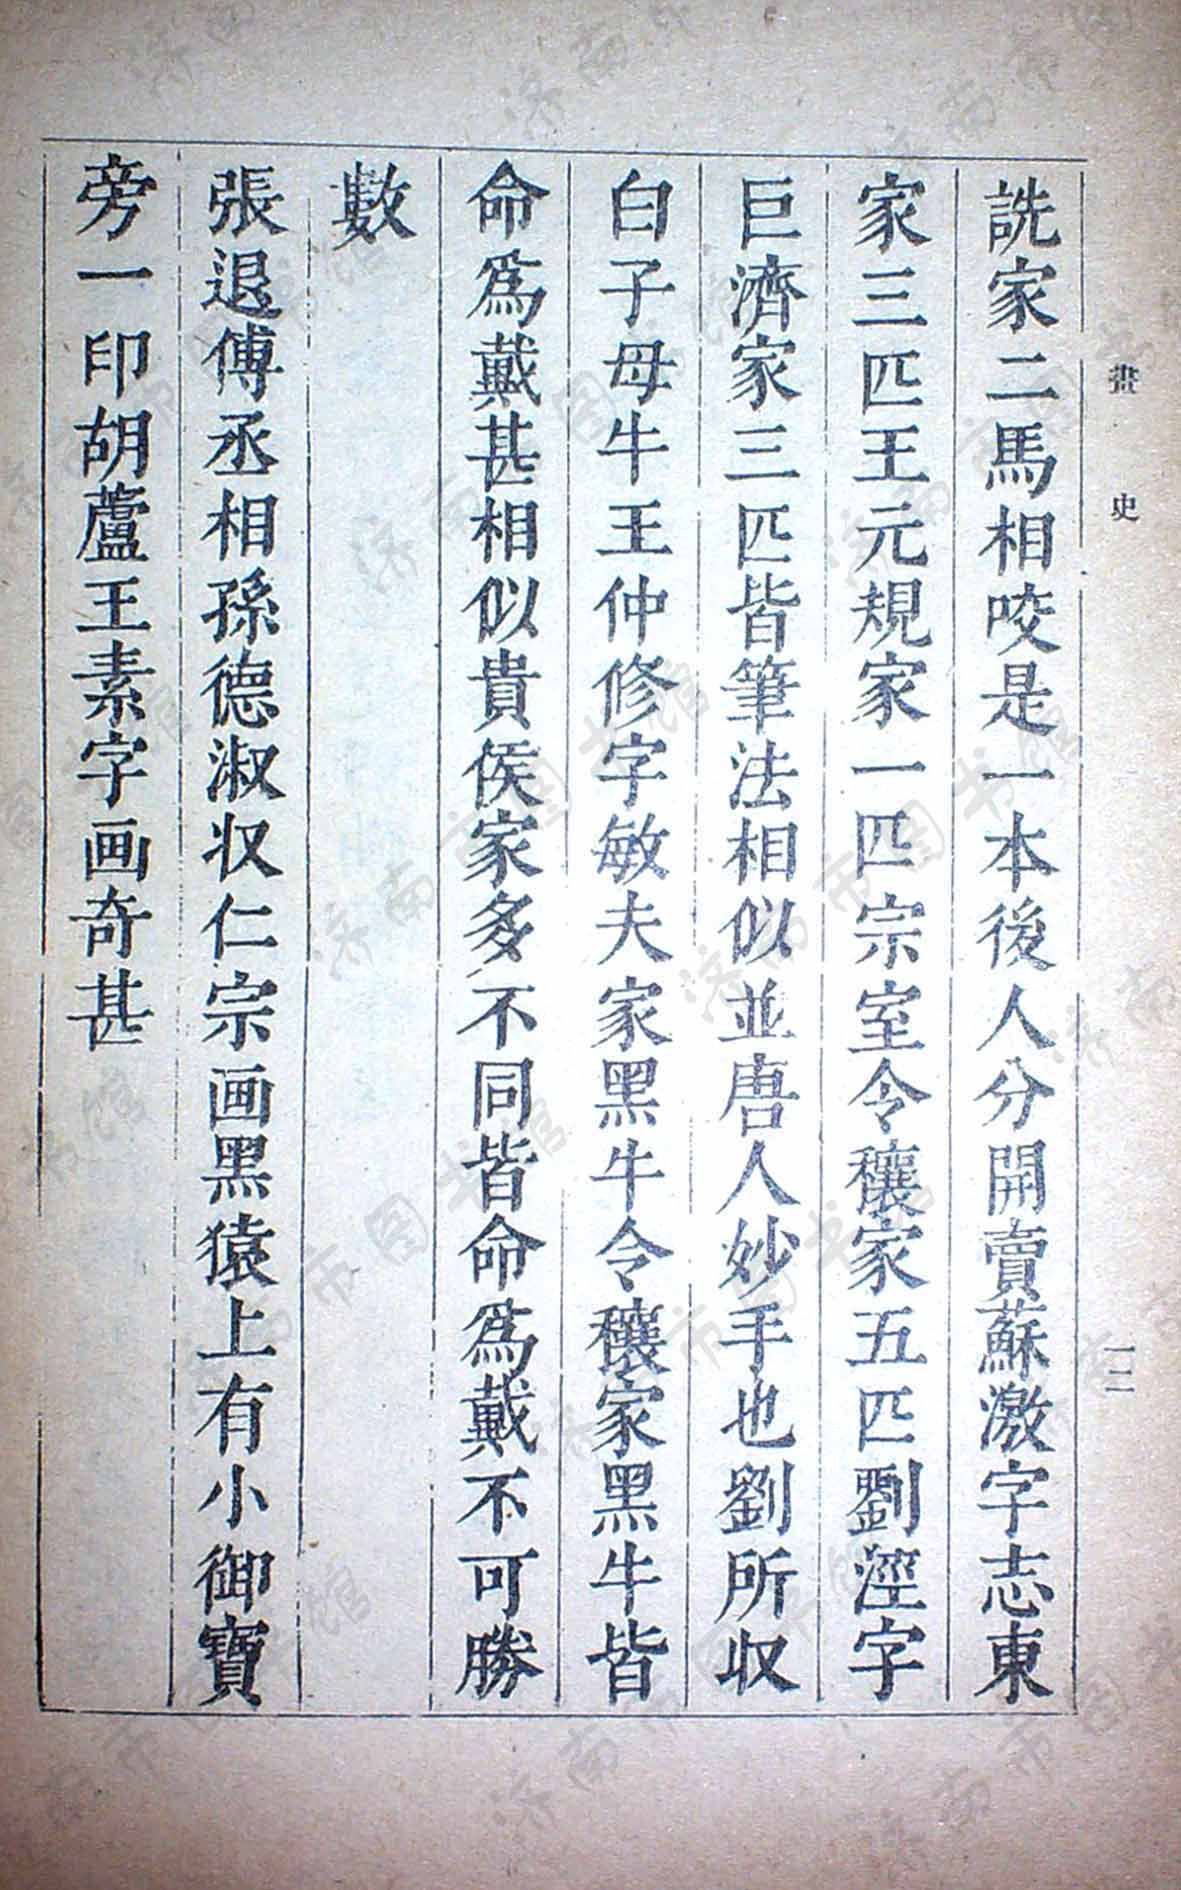 詵家二馬相咬是一本後人分開賣蘇激字志東
家三匹王元規家一匹宗室令穰家五匹劉涇字
巨濟家三匹皆筆法相似並唐人妙手也劉所収
白子母牛王仲修字敏夫家黑牛令穰家黑牛皆
命爲戴甚相似貴侯家多不同皆命爲戴不可勝
數
張退傅丞相孫德淑収仁宗画黑猿上有小御寶
旁一印胡蘆王素字画奇甚
畫史
一二
济南市图书馆